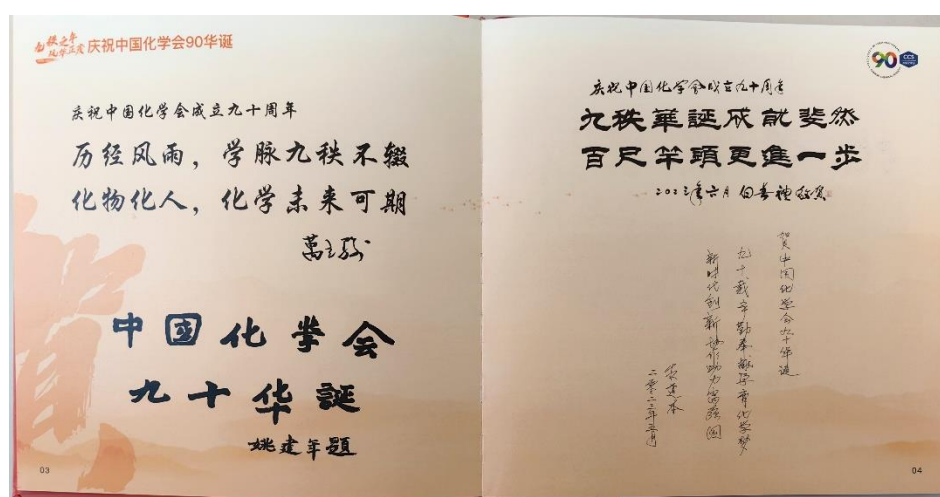 庆祝中国化学会90华诞
庆祝中国化学会成立九十周年
历经风雨，学脉九秩不辍
化物化人，化学未来可期
中国化学会
九十华诞
姚建年题
03
90
CCS
庆祝中国化学会成立九十周年
九秩華誕成就斐然
百尺竿頭更進一步
賀中国化学会九十华诞
九十载辛勤奉献孕育化学梦
新时代创新协作助力富强国
04